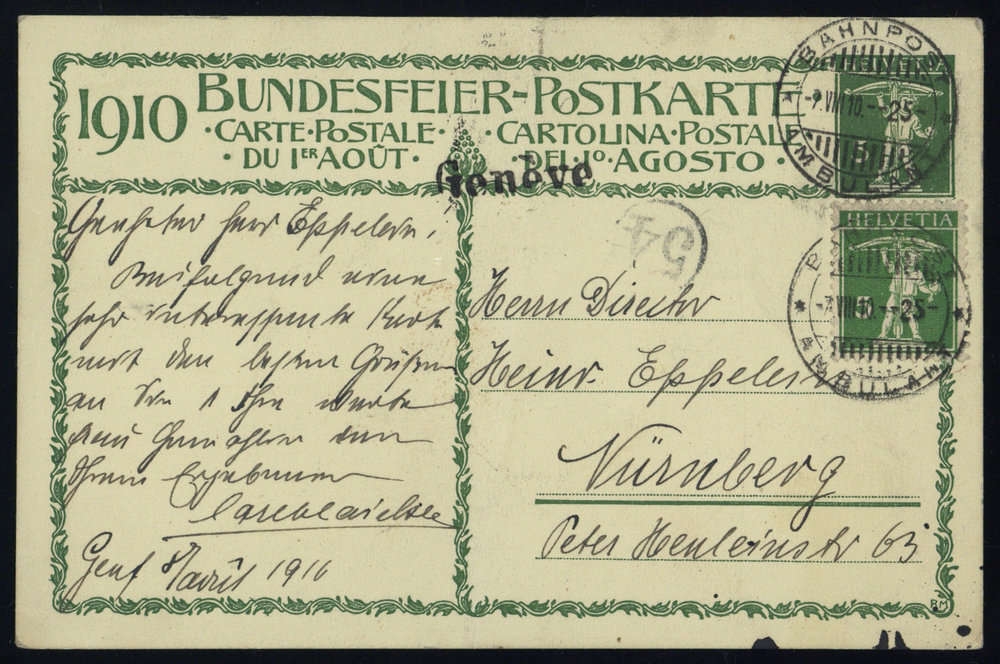 1910 BUNDESFEIER-POSTKARTE
·CARTE·POSTALE· ·CARTOLINA·POSTALE
·DU 1ER AOÛT· ·DEL 1º·AGOSTO·
Genève
BAHNPOST
AMBULANT
-7.VIII.10.--25-
5
HELVETIA
-7.VIII.10.--25-
AMBULANT
54
Geehrter Herr Eppelein,
Beifolgend eine
sehr interessante Karte
mit den besten Grüßen
an
Ihren
Genf 1910
Herrn Director
Heinr. Eppelein
Nürnberg
Peter Henleinstr 63
RM